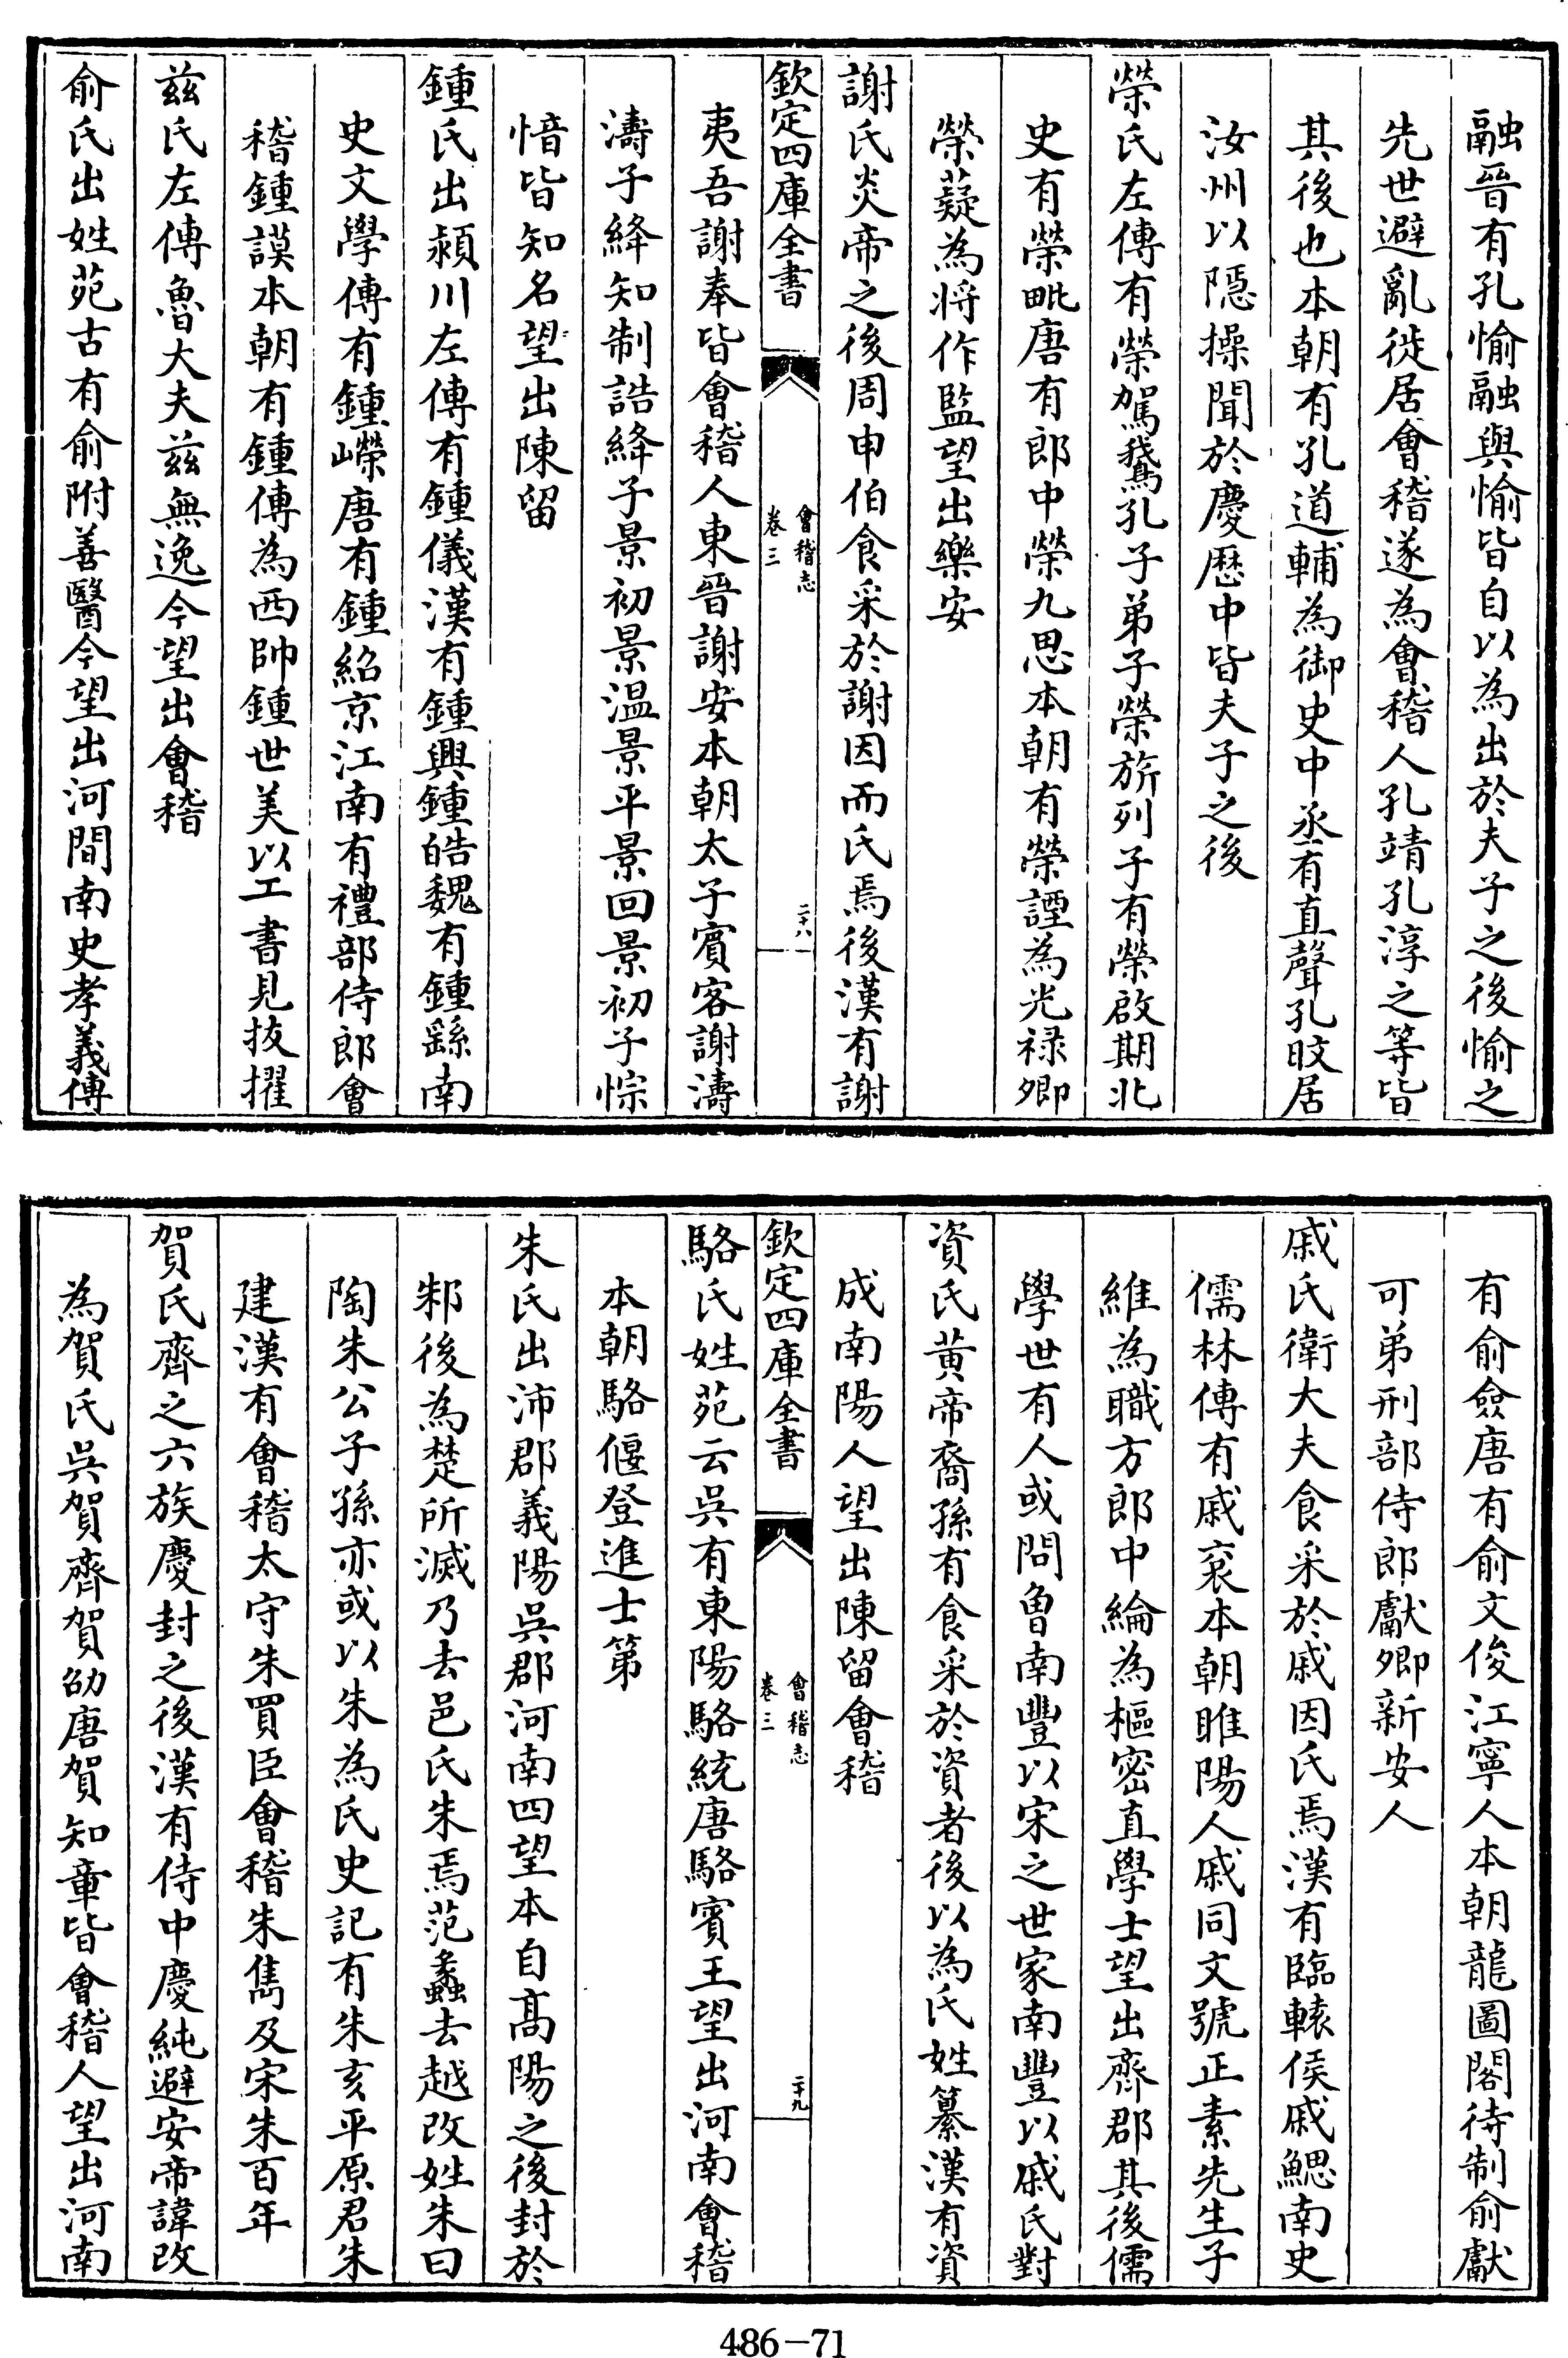 融晉有孔愉融與愉皆自以為出於夫子之後愉之
先世避亂徙居會稽遂為會稽人孔靖孔淳之等皆
其後也本朝有孔道輔為御史中丞有直聲孔旼居
汝州以隱操聞於慶歴中皆夫子之後
榮氏左傳有榮駕鵞孔子弟子榮旂列子有榮啟期北
史有榮毗唐有郎中榮九思本朝有榮諲為光禄卿
榮薿為將作監望出樂安
謝氏炎帝之後周申伯食采於謝因而氏焉後漢有謝
欽定四庫全書
會稽志
卷三
二十八
夷吾謝奉皆會稽人東晉謝安本朝太子賓客謝濤
濤子絳知制誥絳子景初景温景平景回景初子悰
愔皆知名望出陳留
鍾氏出潁川左傳有鍾儀漢有鍾興鍾皓魏有鍾繇南
史文學傳有鍾嶸唐有鍾紹京江南有禮部侍郎會
稽鍾謨本朝有鍾傳為西帥鍾世美以工書見抜擢
兹氏左傳魯大夫兹無逸今望出會稽
俞氏出姓苑古有俞附善醫今望出河間南史孝義傳
有俞僉唐有俞文俊江寧人本朝龍圖閣待制俞獻
可弟刑部侍郎獻卿新安人
戚氏衛大夫食采於戚因氏焉漢有臨轅侯戚鰓南史
儒林傳有戚衮本朝睢陽人戚同文號正素先生子
維為職方郎中綸為樞密直學士望出齊郡其後儒
學世有人或問魯南豐以宋之世家南豐以戚氏對
資氏黄帝裔孫有食采於資者後以為氏姓纂漢有資
成南陽人望出陳留會稽
欽定四庫全書
會稽志
卷三
二十九
駱氏姓苑云吳有東陽駱統唐駱賓王望出河南會稽
本朝駱偃登進士第
朱氏出沛郡義陽吳郡河南四望本自髙陽之後封於
邾後為楚所滅乃去邑氏朱焉范蠡去越改姓朱曰
陶朱公子孫亦或以朱為氏史記有朱亥平原君朱
建漢有會稽太守朱買臣會稽朱雋及宋朱百年
賀氏齊之六族慶封之後漢有侍中慶純避安帝諱改
為賀氏吳賀齊賀劭唐賀知章皆會稽人望出河南
486-71